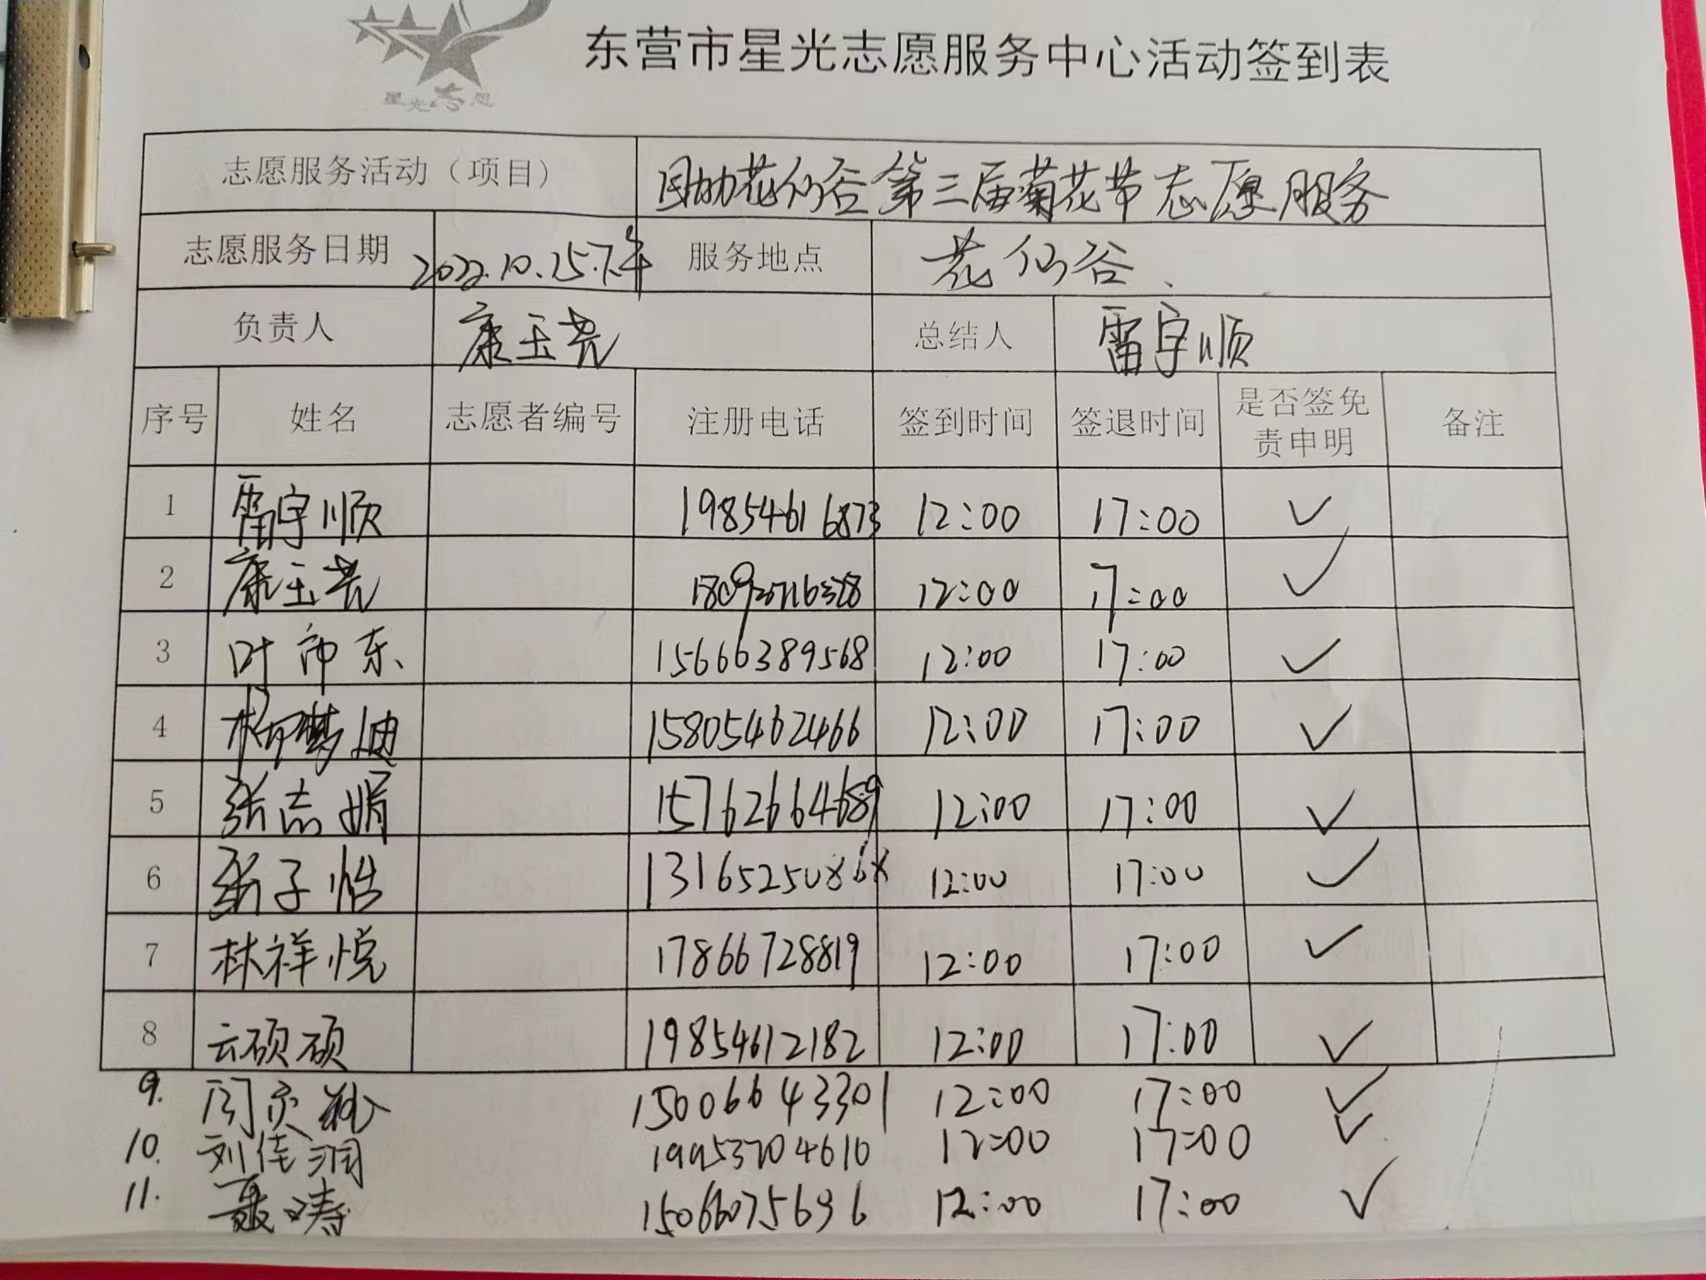 星光志愿
东营市星光志愿服务中心活动签到表
志愿服务活动（项目） 助力花仙谷第三届菊花节志愿服务
志愿服务日期 2022.10.15.下午 服务地点 花仙谷
负责人 康玉亮 总结人 雷宇顺
序号 姓名 志愿者编号 注册电话 签到时间 签退时间 是否签免责申明 备注
1 雷宇顺 19854616873 12:00 17:00 ✓
2 康玉亮 12:00 17:00 ✓
3 叶帅东 15666389568 12:00 17:00 ✓
4 柳梦迪 15805462466 12:00 17:00 ✓
5 张志娟 15762664689 12:00 17:00 ✓
6 张子恺 12:00 17:00 ✓
7 林祥悦 17866728819 12:00 17:00 ✓
8 云硕硕 19854612182 12:00 17:00 ✓
9. 15006643301 12:00 17:00 ✓
10. 刘佳润 19953704610 12:00 17:00 ✓
11. 聂涛 15066075696 12:00 17:00 ✓